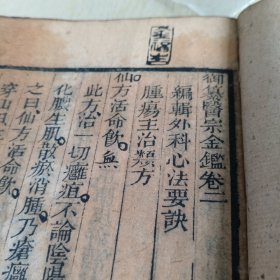 御纂醫宗金鑑卷二
編輯外科心法要訣
腫瘍主治類方
仙方活命飲
此方治一切癰疽不論陰
化膿生肌散瘀消腫乃瘡癰
之曰仙方活命飲
穿山甲